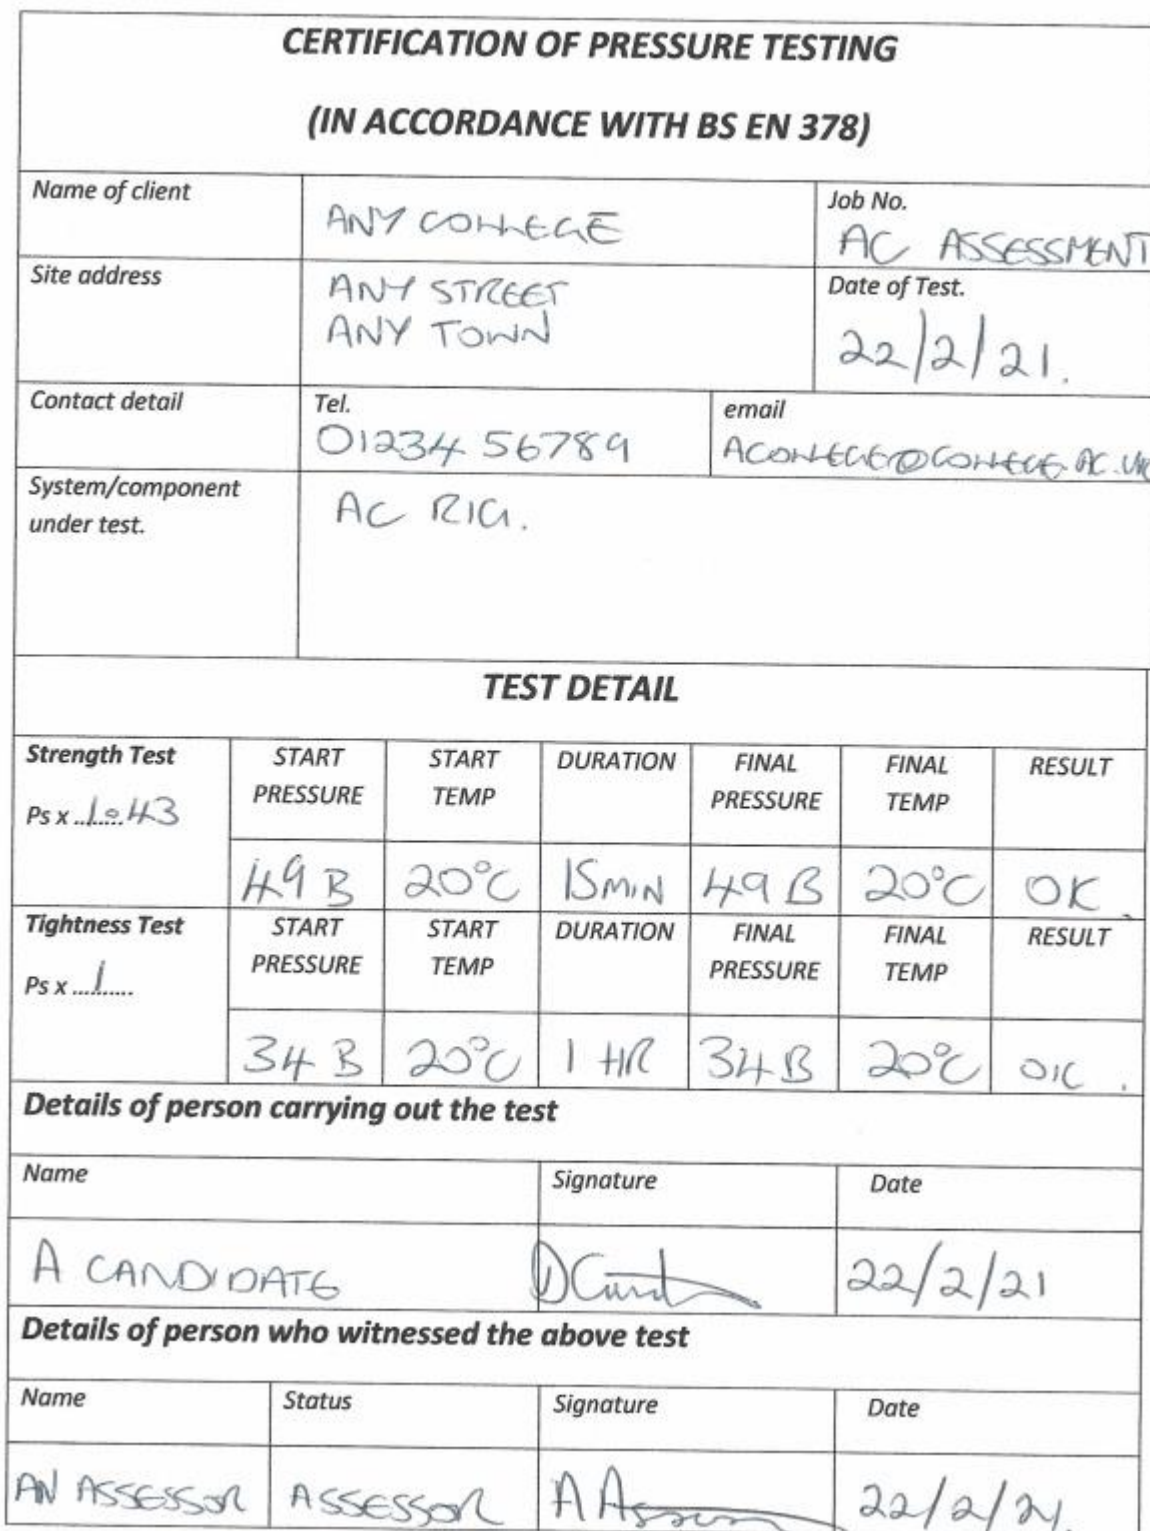 CERTIFICATION OF PRESSURE TESTING
(IN ACCORDANCE WITH BS EN 378)
Name of client
ANY COLLEGE
Job No.
AC ASSESSMENT
Site address
ANY STREET
ANY TOWN
Date of Test.
22/2/21.
Contact detail
Tel.
01234 56789
email
ACOLLEGE@COLLEGE.AC.UK
System/component
under test.
AC RIG.
TEST DETAIL
Strength Test
Ps x 1.43
START PRESSURE
START TEMP
DURATION
FINAL PRESSURE
FINAL TEMP
RESULT
49 B 20°C 15MIN 49 B 20°C OK.
Tightness Test
Ps x 1
START PRESSURE
START TEMP
DURATION
FINAL PRESSURE
FINAL TEMP
RESULT
34 B 20°C 1 HR 34B 20°C OK.
Details of person carrying out the test
Name Signature Date
A CANDIDATE 22/2/21
Details of person who witnessed the above test
Name Status Signature Date
AN ASSESSOR ASSESSOR 22/2/21.